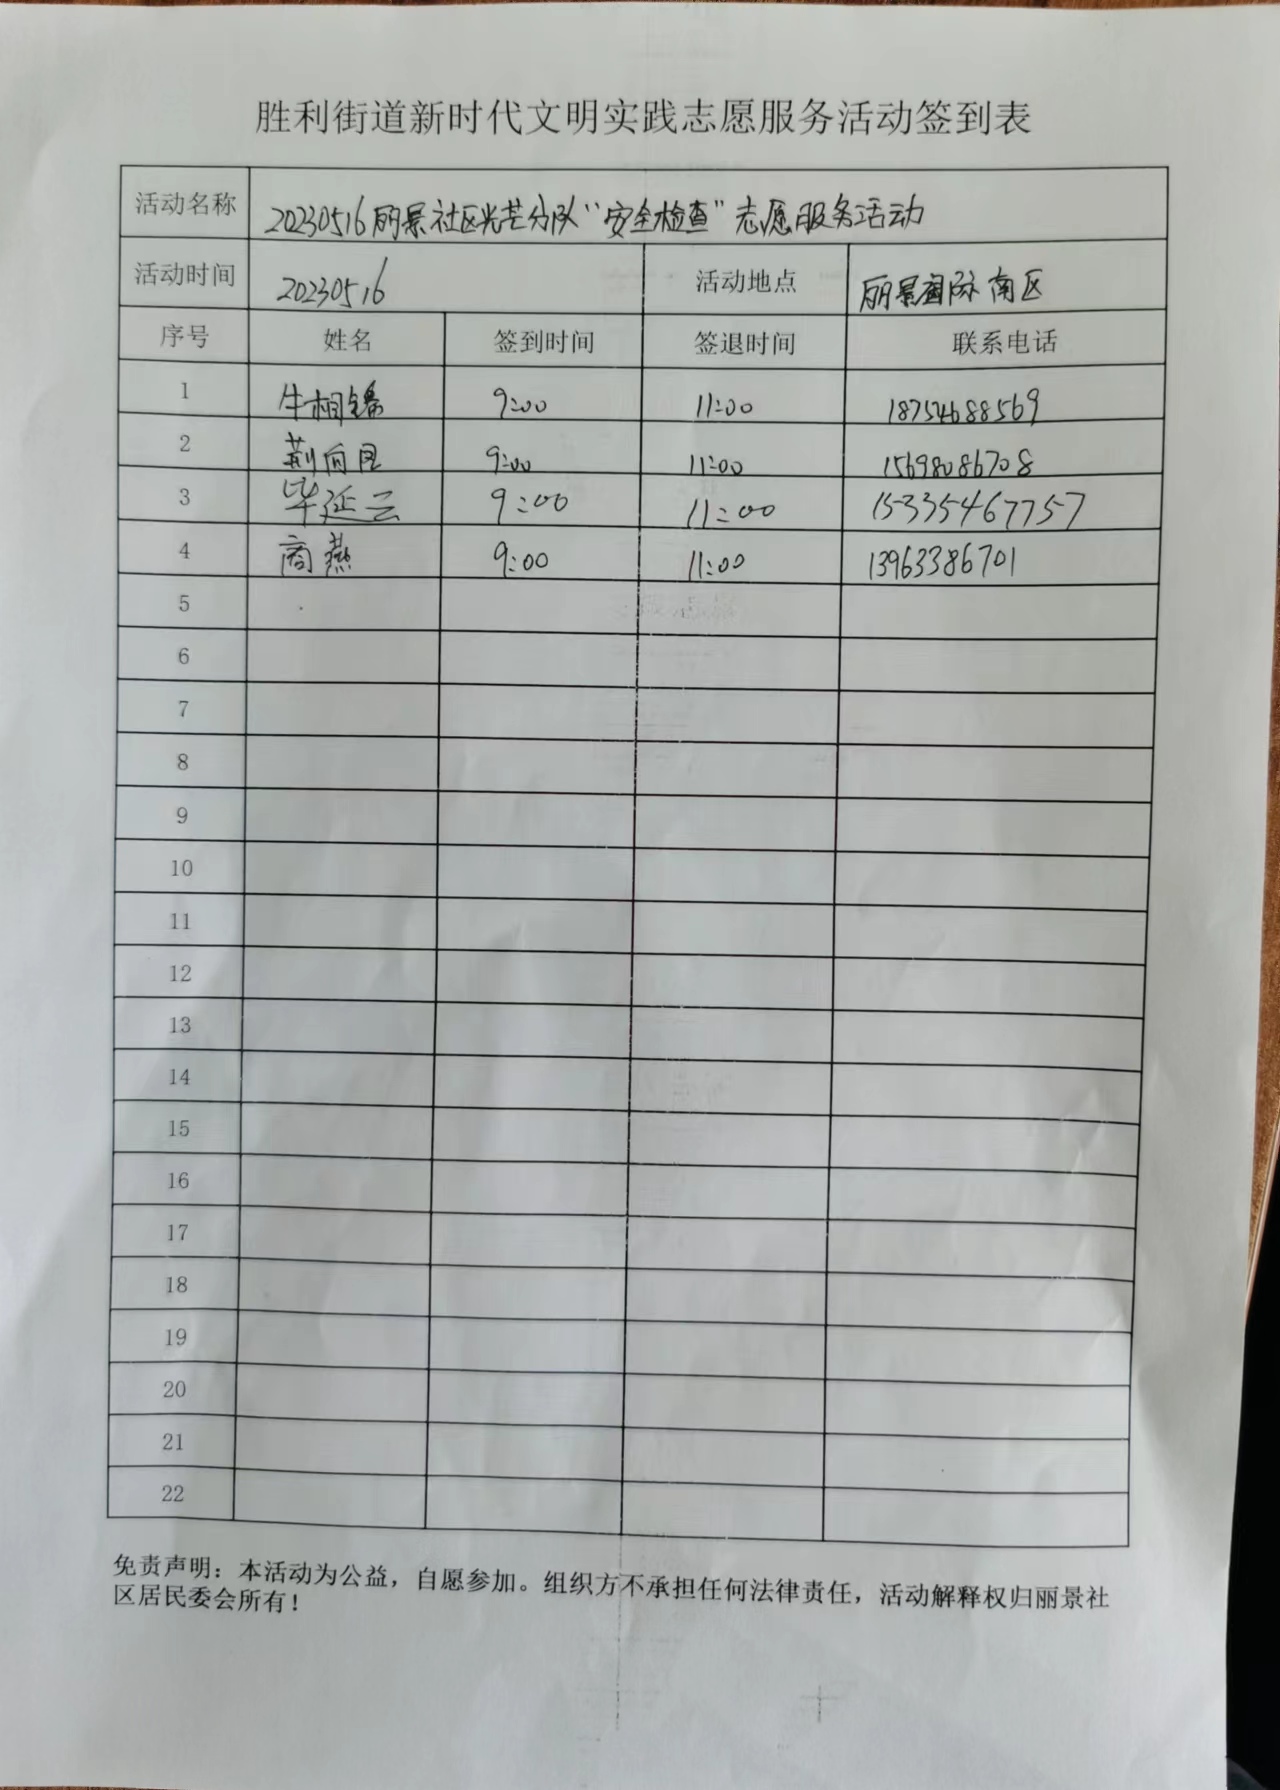 胜利街道新时代文明实践志愿服务活动签到表
活动名称 20230516丽景社区光芒分队“安全检查”志愿服务活动
活动时间 20230516 活动地点 丽景国际南区
序号 姓名 签到时间 签退时间 联系电话
1 牛相锦 9:00 11:00 18754688569
2 荆向 9:00 11:00 15698086708
3 毕延云 9:00 11:00 15335467757
4 商燕 9:00 11:00 13963386701
5
6
7
8
9
10
11
12
13
14
15
16
17
18
19
20
21
22
免责声明：本活动为公益，自愿参加。组织方不承担任何法律责任，活动解释权归丽景社
区居民委会所有！